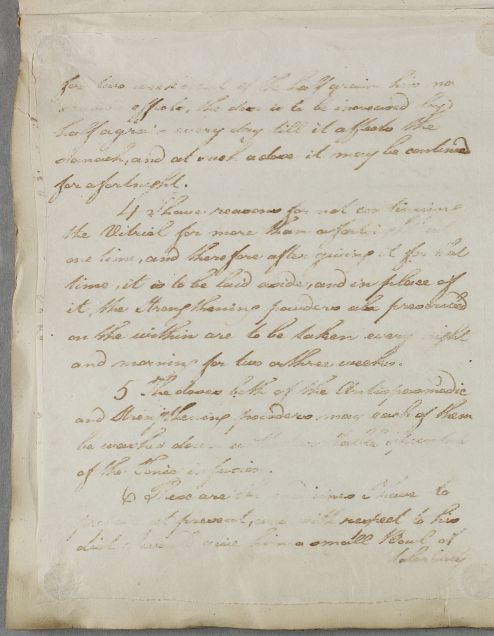 for two and if of the half grain has no
effects, the dose is to be increased by
half a grain every day till it affects the
stomach, and at such a dose it may be continued
for a fortnight.
4 I have reasons for not continuing
the Vitriol for more than a fortnight at
one time, and therefore after giving it for that
time, it is to be laid aside, and in place of
it, the Strengthening powders as prescribed
on the within are to be taken every night
and morning for two or three weeks.
5 The doses both of the Antispasmodic
and Strengthening powders may each of them
be washed down with table spoonfuls
of the Tonic infusion.
6 These are the medicines I have to
propose at present, and with respect to his
diet give him a small Bowl of